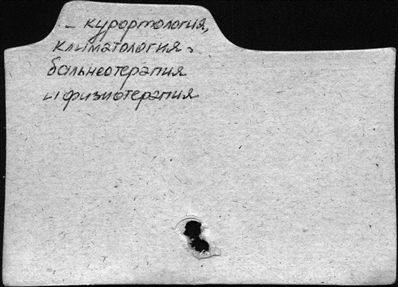 – курортология,
климатология,
бальнеотерапия
и физиотерапия